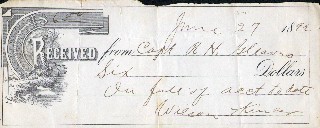 June 27 189
RECEIVED from Capt R. H.
Six Dollars
In full of acct to date
Wilson